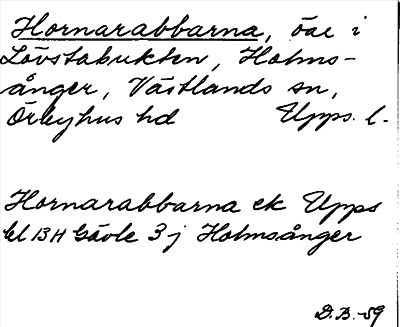 Hornarabbarna, öar i
Lövstabukten, Holms-
ånger, Västlands sn,
Örbyhus hd Upps. l.
Hornarabbarna ek Upps
bl 13H Gävle 3 j Holmsånger
D.B.-59